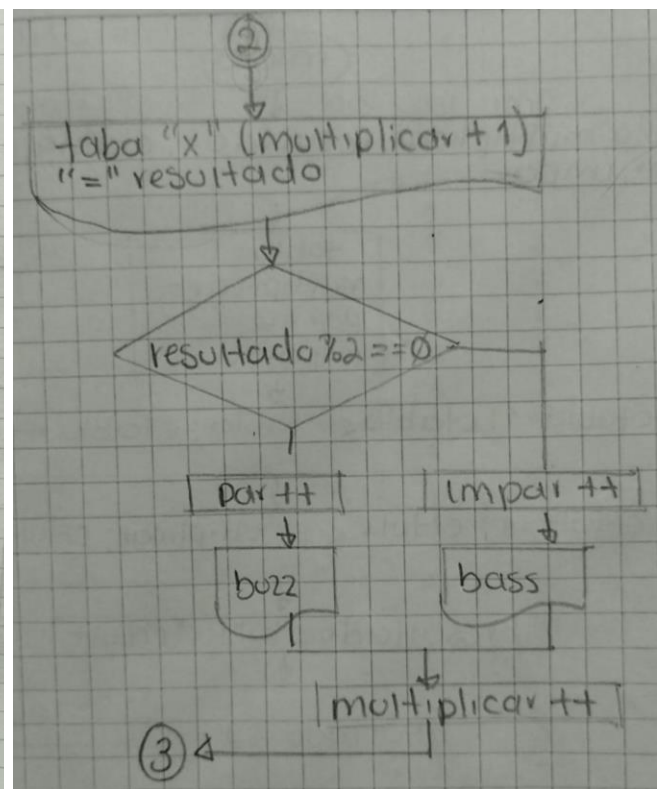 2
taba "x" (multiplicar + 1)
"=" resultado
resultado %2 == 0
par ++
impar ++
buzz
bass
multiplicar ++
3